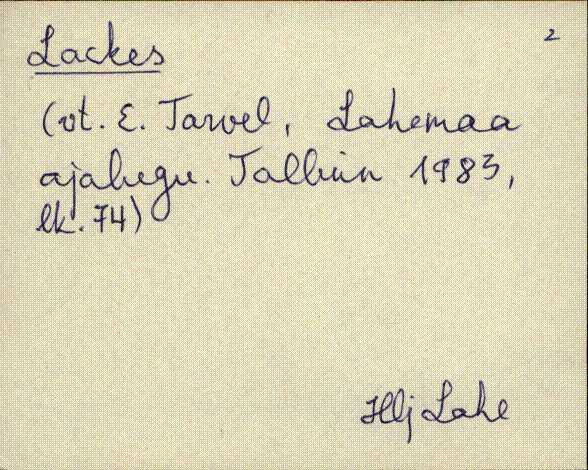 2
Lackes
(vt. E. Tarvel, Lahemaa
ajalugu. Tallinn 1983,
lk. 74)
Hlj Lahe